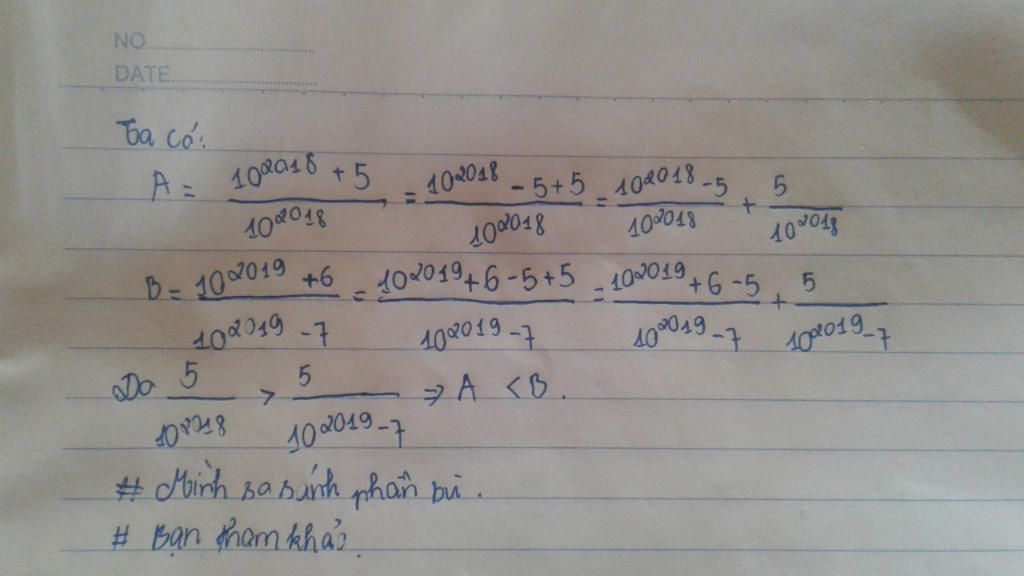 NO
DATE
Ta có:
A = \frac{10^{2018} + 5}{10^{2018}} = \frac{10^{2018} - 5 + 5}{10^{2018}} = \frac{10^{2018} - 5}{10^{2018}} + \frac{5}{10^{2018}}
B = \frac{10^{2019} + 6}{10^{2019} - 7} = \frac{10^{2019} + 6 - 5 + 5}{10^{2019} - 7} = \frac{10^{2019} + 6 - 5}{10^{2019} - 7} + \frac{5}{10^{2019} - 7}
Do \frac{5}{10^{2018}} > \frac{5}{10^{2019} - 7} ⇒ A < B.
# Mình sa sánh phần bù.
# Bạn tham khảo.